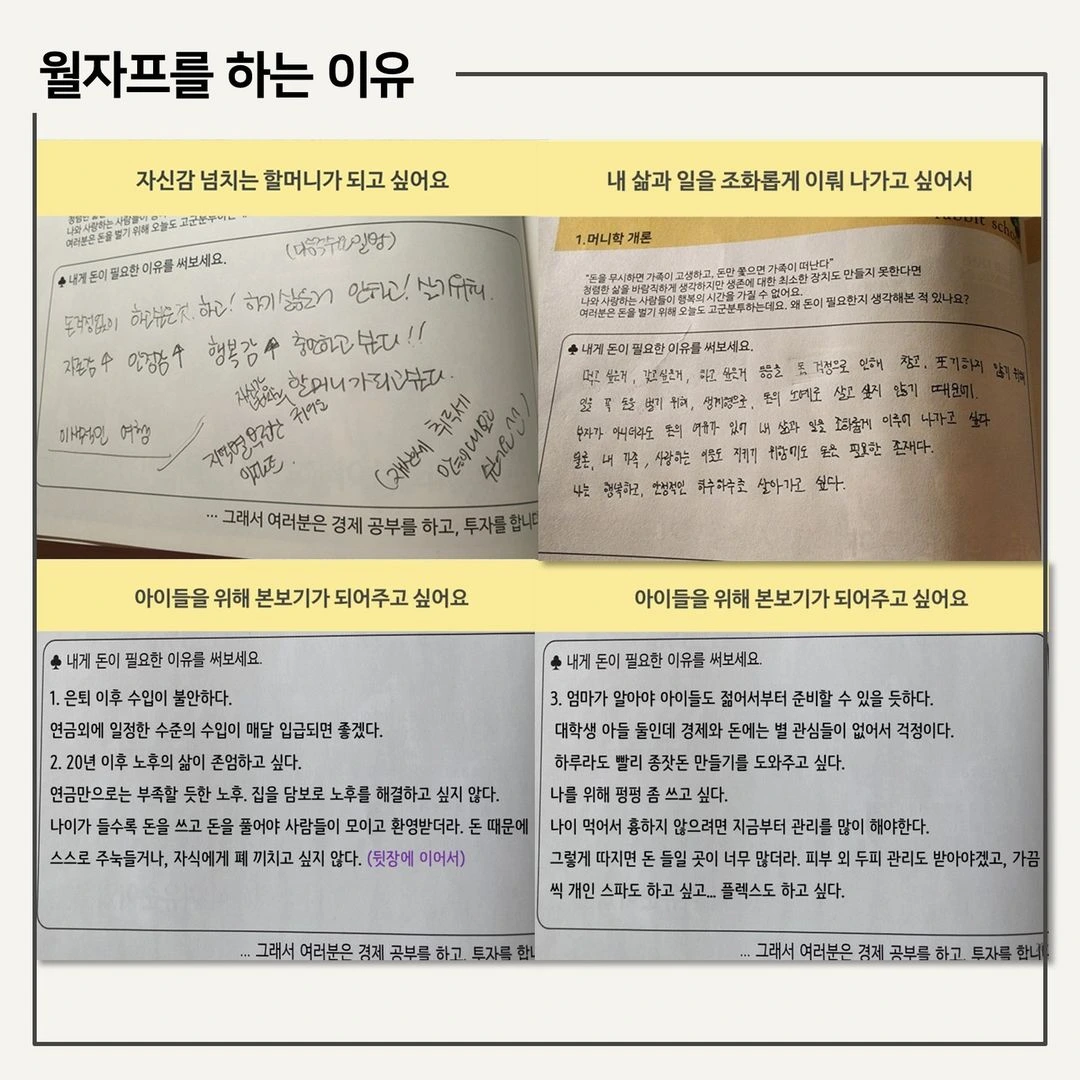 월자프를 하는 이유
자신감 넘치는 할머니가 되고 싶어요
나와 사랑하는 사람들이
여러분은 돈을 벌기 위해 오늘도 고군분투하는데
♣ 내게 돈이 필요한 이유를 써보세요.
돈걱정없이 하고싶은것 하고! 하기싫은거 안하고! 살기위해.
자존감↑ 안정감↑ 행복감↑ 충만하고 싶다!!
할머니가 되고싶다.
여행
… 그래서 여러분은 경제 공부를 하고, 투자를 합니다
내 삶과 일을 조화롭게 이뤄 나가고 싶어서
rabbit scho
1.머니학 개론
"돈을 무시하면 가족이 고생하고, 돈만 쫓으면 가족이 떠난다"
청렴한 삶을 바람직하게 생각하지만 생존에 대한 최소한 장치도 만들지 못한다면
나와 사랑하는 사람들이 행복의 시간을 가질 수 없어요.
여러분은 돈을 벌기 위해 오늘도 고군분투하는데요. 왜 돈이 필요한지 생각해본 적 있나요?
♣ 내게 돈이 필요한 이유를 써보세요.
먹고 싶은거, 갖고싶은거, 하고 싶은거 등등을 돈 걱정으로 인해 참고, 포기하지 않기 위해
일을 꼭 돈을 벌기 위해, 생계형으로, 돈의 노예로 살고 싶지 않기 때문에.
부자가 아니더라도 돈의 여유가 있어 내 삶과 일을 조화롭게 이루어 나가고 싶다
물론, 내 가족, 사랑하는 이웃도 지키기 위함에도 돈은 필요한 존재다.
나는 행복하고, 안정적인 하루하루로 살아가고 싶다.
아이들을 위해 본보기가 되어주고 싶어요
♣ 내게 돈이 필요한 이유를 써보세요.
1. 은퇴 이후 수입이 불안하다.
연금외에 일정한 수준의 수입이 매달 입급되면 좋겠다.
2. 20년 이후 노후의 삶이 존엄하고 싶다.
연금만으로는 부족할 듯한 노후. 집을 담보로 노후를 해결하고 싶지 않다.
나이가 들수록 돈을 쓰고 돈을 풀어야 사람들이 모이고 환영받더라. 돈 때문에
스스로 주눅들거나, 자식에게 폐 끼치고 싶지 않다. (뒷장에 이어서)
… 그래서 여러분은 경제 공부를 하고, 투자를 합니
아이들을 위해 본보기가 되어주고 싶어요
♣ 내게 돈이 필요한 이유를 써보세요.
3. 엄마가 알아야 아이들도 젊어서부터 준비할 수 있을 듯하다.
대학생 아들 둘인데 경제와 돈에는 별 관심들이 없어서 걱정이다.
하루라도 빨리 종잣돈 만들기를 도와주고 싶다.
나를 위해 펑펑 좀 쓰고 싶다.
나이 먹어서 흉하지 않으려면 지금부터 관리를 많이 해야한다.
그렇게 따지면 돈 들일 곳이 너무 많더라. 피부 외 두피 관리도 받아야겠고, 가끔
씩 개인 스파도 하고 싶고... 플렉스도 하고 싶다.
… 그래서 여러분은 경제 공부를 하고, 투자를 합니